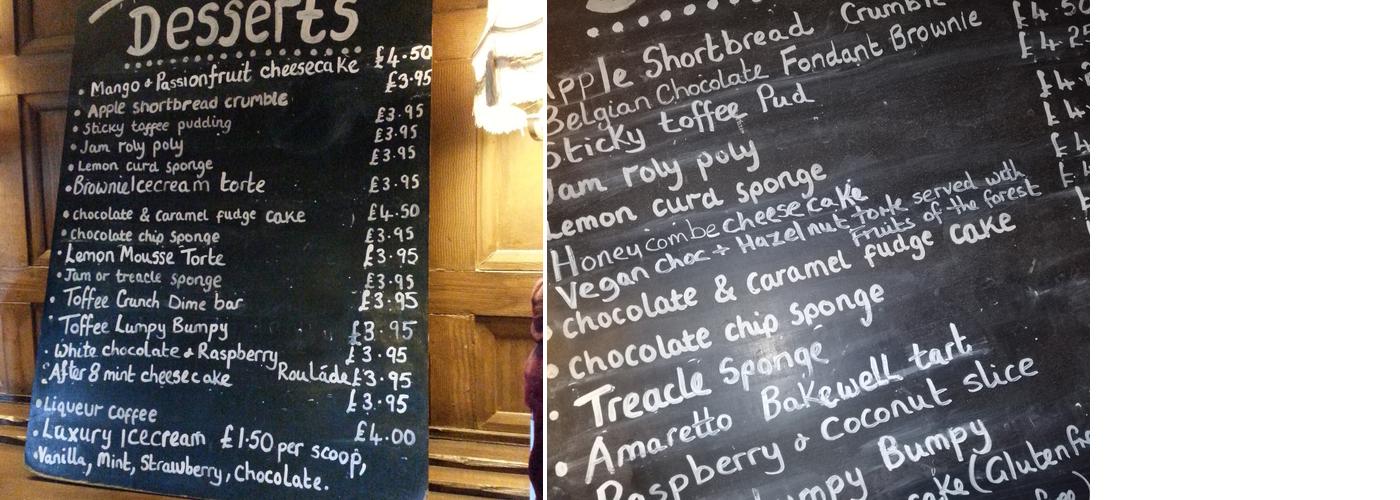 Desserts
• Mango & Passionfruit cheesecake £4.50
• Apple shortbread crumble £3.95
• Sticky toffee pudding £3.95
• Jam roly poly £3.95
• Lemon curd sponge £3.95
• Brownie Icecream torte £3.95
• chocolate & caramel fudge cake £4.50
• chocolate chip sponge £3.95
• Lemon Mousse Torte £3.95
• Jam or treacle sponge £3.95
• Toffee Crunch Dime bar £3.95
• Toffee Lumpy Bumpy £3.95
• White chocolate & Raspberry Roulade £3.95
• After 8 mint cheesecake £3.95
£3.95
• Liqueur coffee £4.00
• Luxury Icecream £1.50 per scoop,
• Vanilla, Mint, Strawberry, Chocolate.
Apple Shortbread Crumble £4.50
Belgian Chocolate Fondant Brownie £4.25
Sticky toffee Pud £4.
Jam roly poly £4.
Lemon curd sponge £4
Honeycombe cheesecake £4
Vegan choc + Hazelnut torte served with
Fruits of the forest
• chocolate & caramel fudge cake
• chocolate chip sponge
• Treacle Sponge
• Amaretto Bakewell tart
Raspberry & Coconut slice
Bumpy